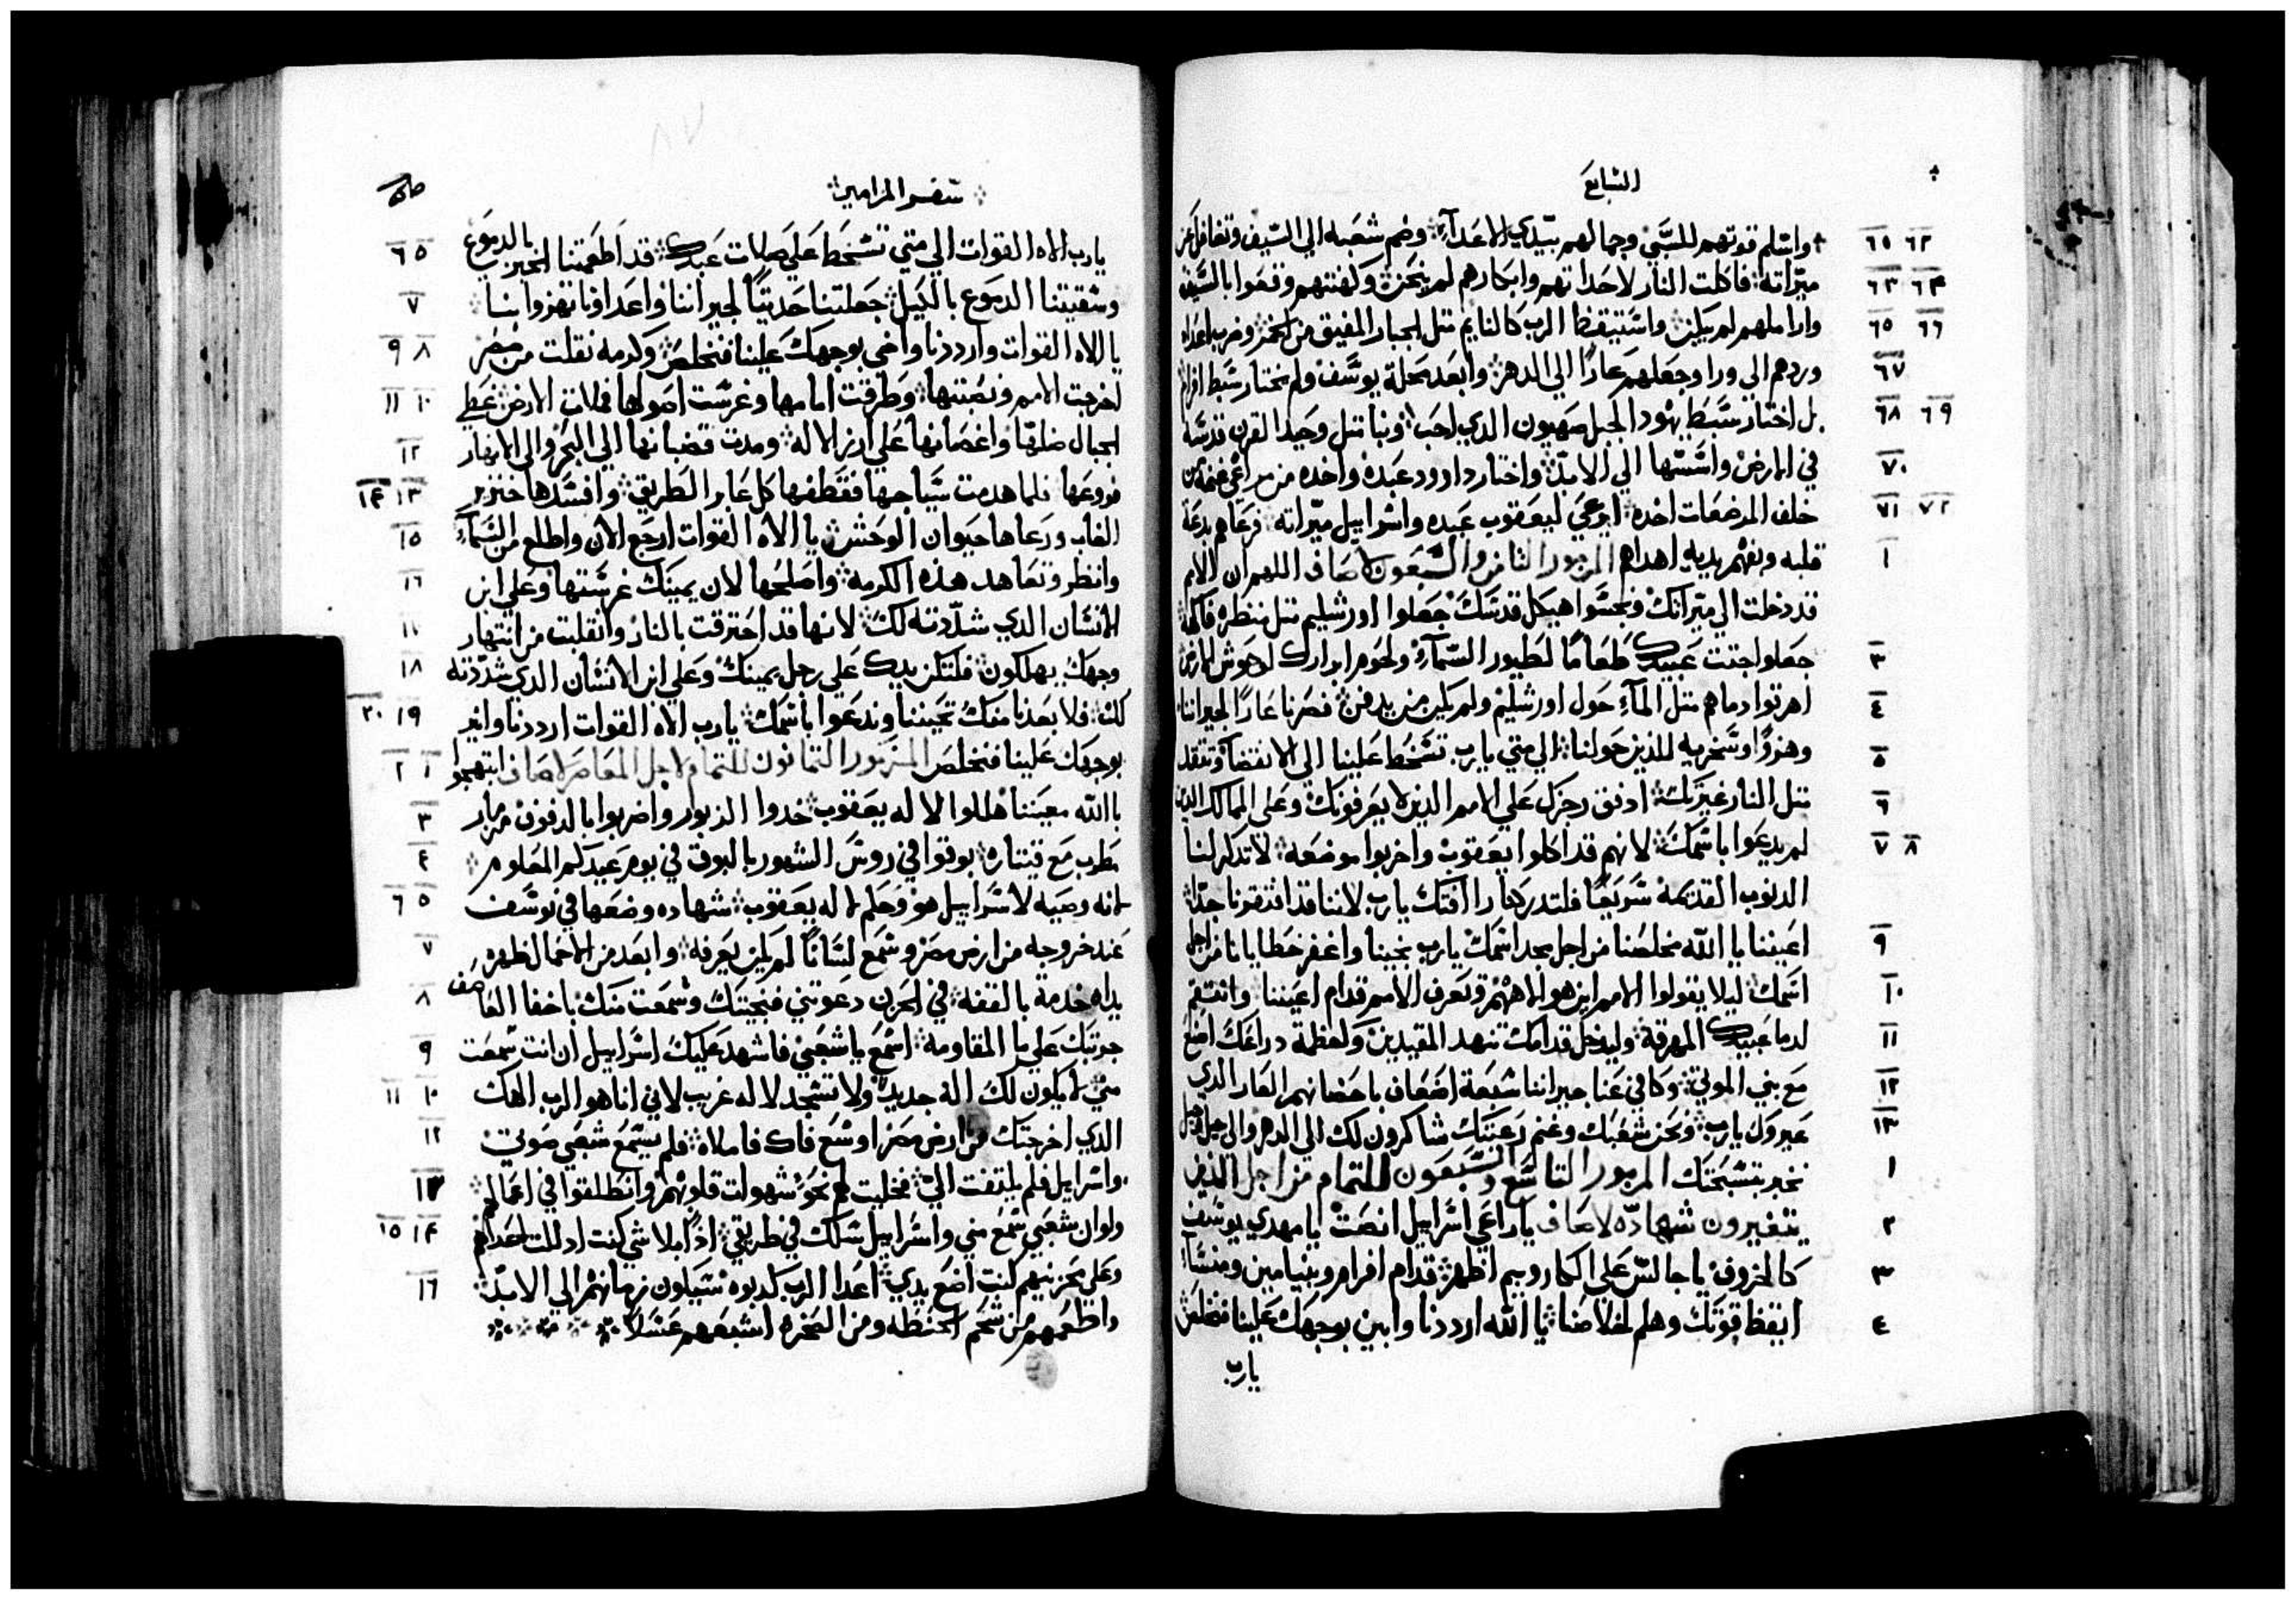 السابع
واسلم قوتهم للسبي وجمالهم بيدي الاعداء وضم شعبه الي السيف وتغافل عن
ميراته فاكلت النار لاحداتهم وابكارهم لم ينحن وكهنتهم وقعوا بالسيف
واراملهم لم يبكين واستيقظ الرب كالنايم متل الجبار المفيق من الخمر وضرب اعداه
وردهم الي ورا وجعلهم عارًا الي الدهر وابعد محلة يوسف ولم يختار سبط افرام
بل اختار سبط يهودا لجبل صهيون الدي احب وبنا متل وحيد القرن قدسه
في الارض واسسها الي الابد واختار داوود عبده واخده من مراعي غنمه من
خلف المرضعات اخده ليرعي ليعقوب عبده واسراييل ميراته فرعاهم بدعة
قلبه وبفهم يديه اهداهم المزمور التامن والسبعون لاصاف اللهم ان الامم
قد دخلت الي ميراتك ونجسوا هيكل قدسك جعلوا اورشليم متل منظرة فاكهة
جعلوا اجتت عبيدك طعامًا لطيور السماء ولحوم ابرارك لوحوش الارض
اهرقوا دماهم متل الماء حول اورشليم ولم يكن من يدفن فصرنا عارًا لجيراننا
وهزوًا وسخريه للذين حولنا الي متي يارب تسخط علينا الي الانقضا وتتقد
متل النار غيرتك ادفق رجزك علي الامم الذين لا يعرفونك وعلي الممالك الذين
لم يدعوا باسمك لانهم قد اكلوا يعقوب واخربوا موضعه لا تدكر لنا
الدنوب القديمة سريعًا فلتدركنا رافتك يارب لاننا قد افتقرنا جدًا
اعيننا يا الله مخلصنا من اجل مجد اسمك يارب نجينا واغفر خطايانا من اجل
اسمك ليلا يقولوا الامم اين هو الاههم وتعرف الامم قدام اعيننا وانتقم
لدما عبيدك المهرقة وليدخل قدامك تنهد المقيدين وكعظمة دراعك اصنع
مع بني الموتي وكافي عنا جيراننا سبعة اضعاف باحضانهم العار الدي
عيروك يارب ونحن شعبك وغنم رعيتك شاكرون لك الي الدهر والي جيل وجيل
نخبر بتسبحتك المزمور التاسع والسبعون للتمام من اجل الذين
يتغيرون شهادة لاصاف ياراعي اسراييل انصت يا مهدي يوسف
كالخروف يا جالس علي الكاروبيم اظهر قدام افرام وبنيامين ومنسا
ايقظ قوتك وهلم لخلاصنا يا الله ارددنا وابين بوجهك علينا فنخلص
يارب
سفر المزامير
يارب الاه القوات الي متي تسخط علي صلات عبدك قد اطعمتنا الخبز بالدموع
وسقيتنا الدموع بالكيل جعلتنا حديتًا لجيراننا واعداونا تهزوا بنا
يا الاه القوات وارددنا واضي بوجهك علينا فنخلص وكرمه نقلت من مصر
اخرجت الامم ونصبتها وطرقت امامها وغرست اصولها فملات الارض غطي
الجبال ضلها واغصانها علي ارز الاله ومدت قضبانها الي البحر والي الانهار
فروعها فلما هدمت سياجها فقطفها كل عابر الطريق وافسدها خنزير
الغاب ورعاها حيوان الوحش يا الاه القوات ارجع الان واطلع من السماء
وانظر وتعاهد هذه الكرمة واصلحها لان يمينك غرستها وعلي ابن
الانسان الدي شددته لك لانها قد احترقت بالنار وانقلبت من انتهار
وجهك يهلكون فلتكن يدك علي رجل يمينك وعلي ابن الانسان الدي شددته
لك فلا بعدنا منك تحيننا وندعوا باسمك يارب الاه القوات ارددنا وانر
بوجهك علينا فنخلص المزمور التمانون للتمام لاجل المعاصر لاصاف ابتهجوا
بالله معيننا هللوا لاله يعقوب خدوا الزبور واضربوا بالدفوف مزمار
مطرب مع قيتاره بوقوا في روس الشهور بالبوق في يوم عيدكم المعلوم
لانه وصيه لاسراييل هو وحكم لاله يعقوب شهاده وضعها في يوسف
عند خروجه من ارض مصر وسمع لسانًا لم يكن يعرفه وابعد من الاحمال ظهره
يداه خدمة بالقفه في الحزن دعوتني فنجيتك وسمعت منك باخفا العاصف
جربتك علي ما المقاومة اسمع يا شعبي فاشهد عليك اسراييل ان انت سمعت
مني لا يكون لك اله جديد ولا تسجد لاله غريب لاني انا هو الرب الاهك
الدي اخرجتك من ارض مصر اوسع فاك فاملاه فلم يسمع شعبي صوتي
واسرايل فلم يلتفت الي فخليت لهم نحو شهوات قلوبهم وانطلقوا في اعمالهم
ولو ان شعبي سمع مني واسراييل سلك في طريقي ادًا بلا شي كنت ادللت اعداهم
وعلي محزنيهم كنت اضع يدي اعدا الرب كدبوه سيكون زمانهم الي الابد
واطعمهم من شحم الحنطه ومن الصخره اشبعهم عسلًا